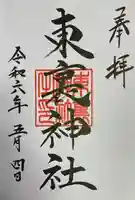 奉拝
東寛神社
令和六年
五月四日